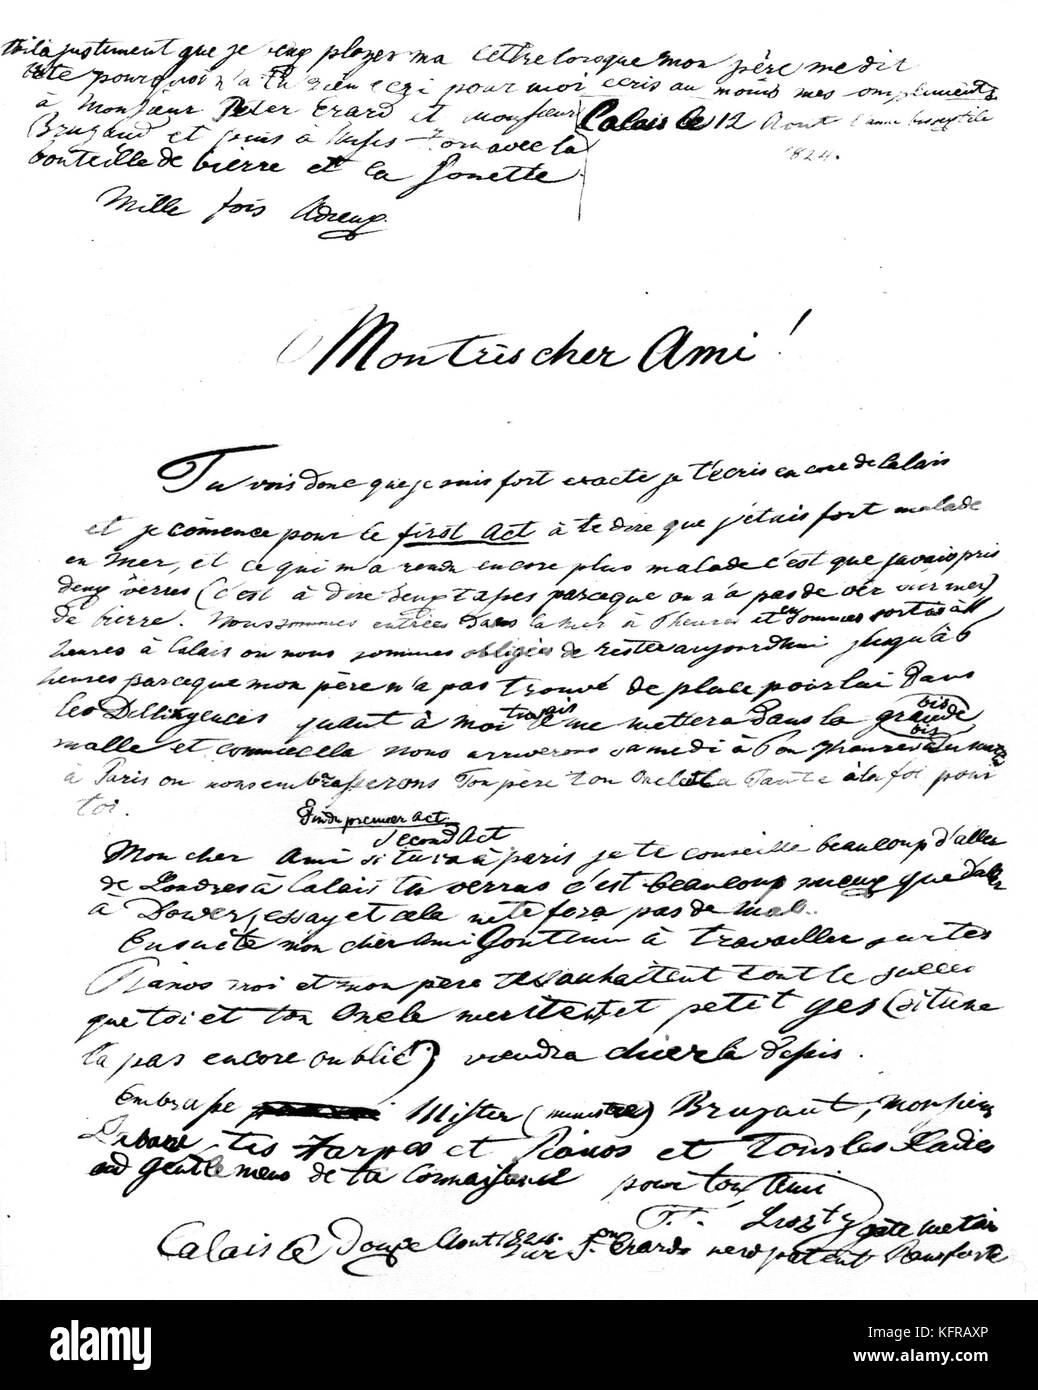 Voilà justement que je veux ployer ma lettre lorsque mon père me dit
pourquoi n'a tu rien ecri pour moi ecris au moins mes compliments
à Monsieur Peter Erard et monsieur
Calais le 12 Aout l'anne bissextile
1824.
Brugaud et puis à
avec la
bouteille de bierre et la Sonette
Mille fois Adieux
Mon très cher Ami!
Tu vois donc que je suis fort exacte je t'écris encore de Calais
et je comence pour le first Act à te dire que j'etais fort malade
en mer, et ce qui m'a rendu encore plus malade c'est que j'avais pris
deux verres (c'est à dire deux tapes parceque on n'a pas de vér sur mer)
de bierre. Nous sommes entrées dans la mer à heures et en sommes sortis à 11
heures à Calais ou nous sommes obligés de rester aujourdhui jusqu'à 6
heures parceque mon père n'a pas trouvé de place pour lui dans
les Dilligences quant à moi me mettera dans la grande
bis
bis
malle et comme cela nous arriverons samedi à 6 ou 7 heures du
à Paris ou nous embrasserons Ton père ton Oncle et la Tante à la foi pour
toi.
Fin du premier act.
Second Act
Mon cher Ami si tu va à paris je te conseille beaucoup d'aller
de Londres à Calais tu verras c'est beaucoup mieux que d'aller
à Dower, essay et cela ne te fera pas de mal.
Ensuite mon cher Ami Continu à travailler sur tes
Pianos moi et mon père te souhaitent tout le succes
que toi et ton Oncle meritent, et petit yes (si tu ne
la pas encore oublié) viendra chier la depis.
Embrasse Mister (ministre) Brugaut, monsieur
tes Harpes et Pianos et Tous les Ladies
and gentlemens de ta connaissance pour ton Ami
F. Liszt
Calais le Douze Aout 1824. sur Erards new patent Pianoforte
alamy
Image ID: KFRAXP
www.alamy.com